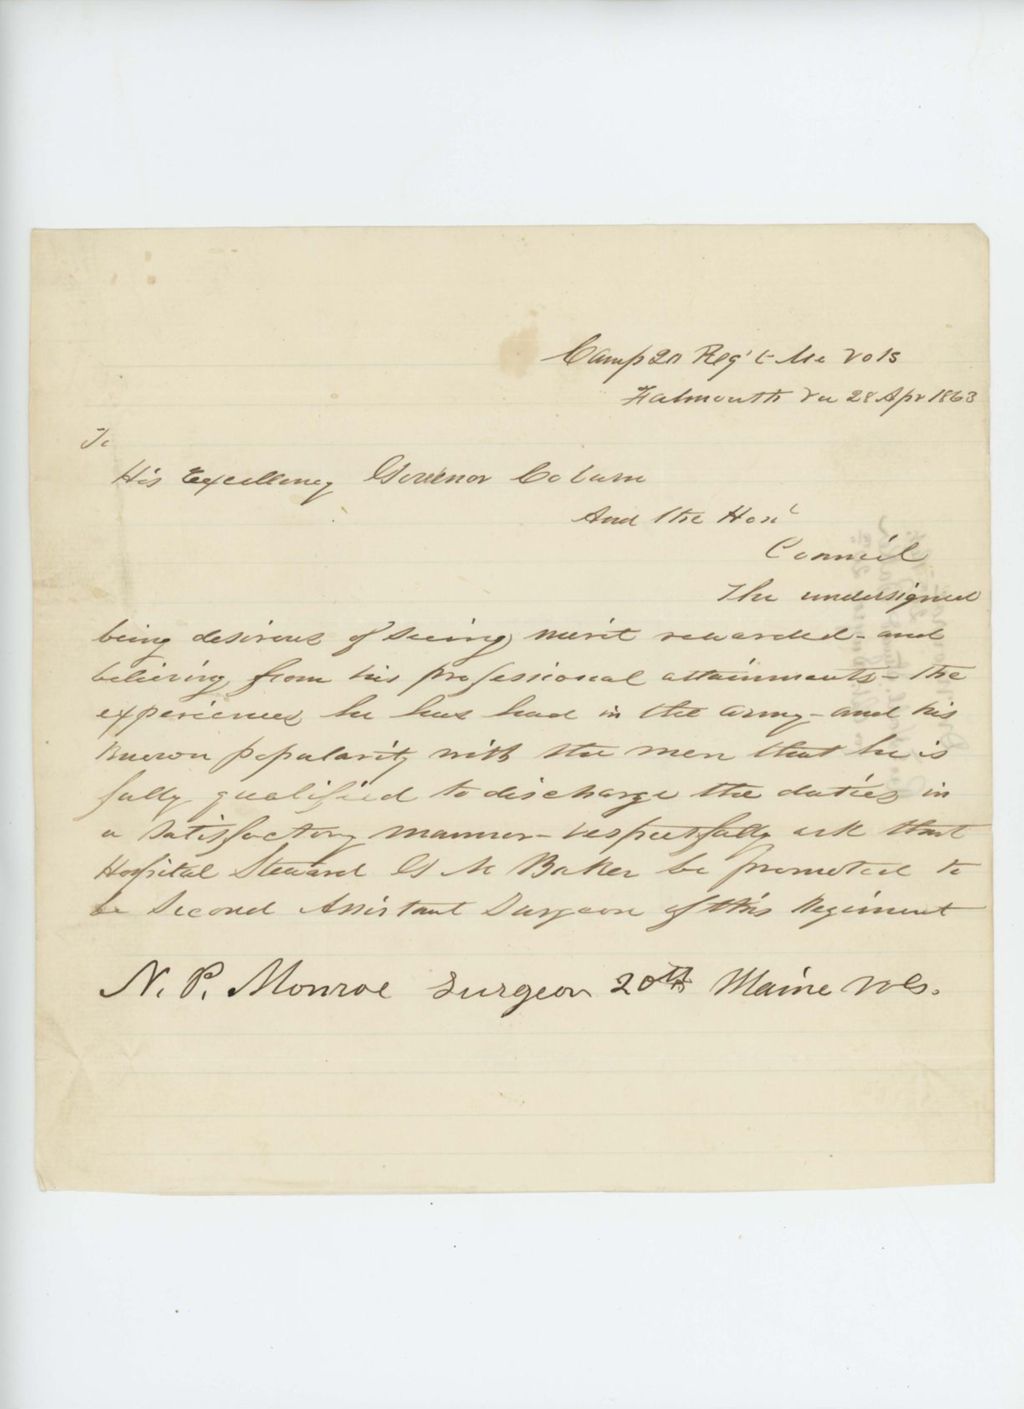 Camp 20 Reg't Me Vols
Falmouth Va 28 Apr 1863
To
His Excellency Governor Coburn
And the Honl
Council
The undersigned
being desirous of seeing merit rewarded - and
believing from his professional attainments - the
experiences he has had in the army - and his
known popularity with the men that he is
fully qualified to discharge the duties in
a satisfactory manner - respectfully ask that
Hospital Steward G M Baker be promoted to
be Second Assistant Surgeon of this Regiment
N. P. Monroe Surgeon 20th Maine Vols.